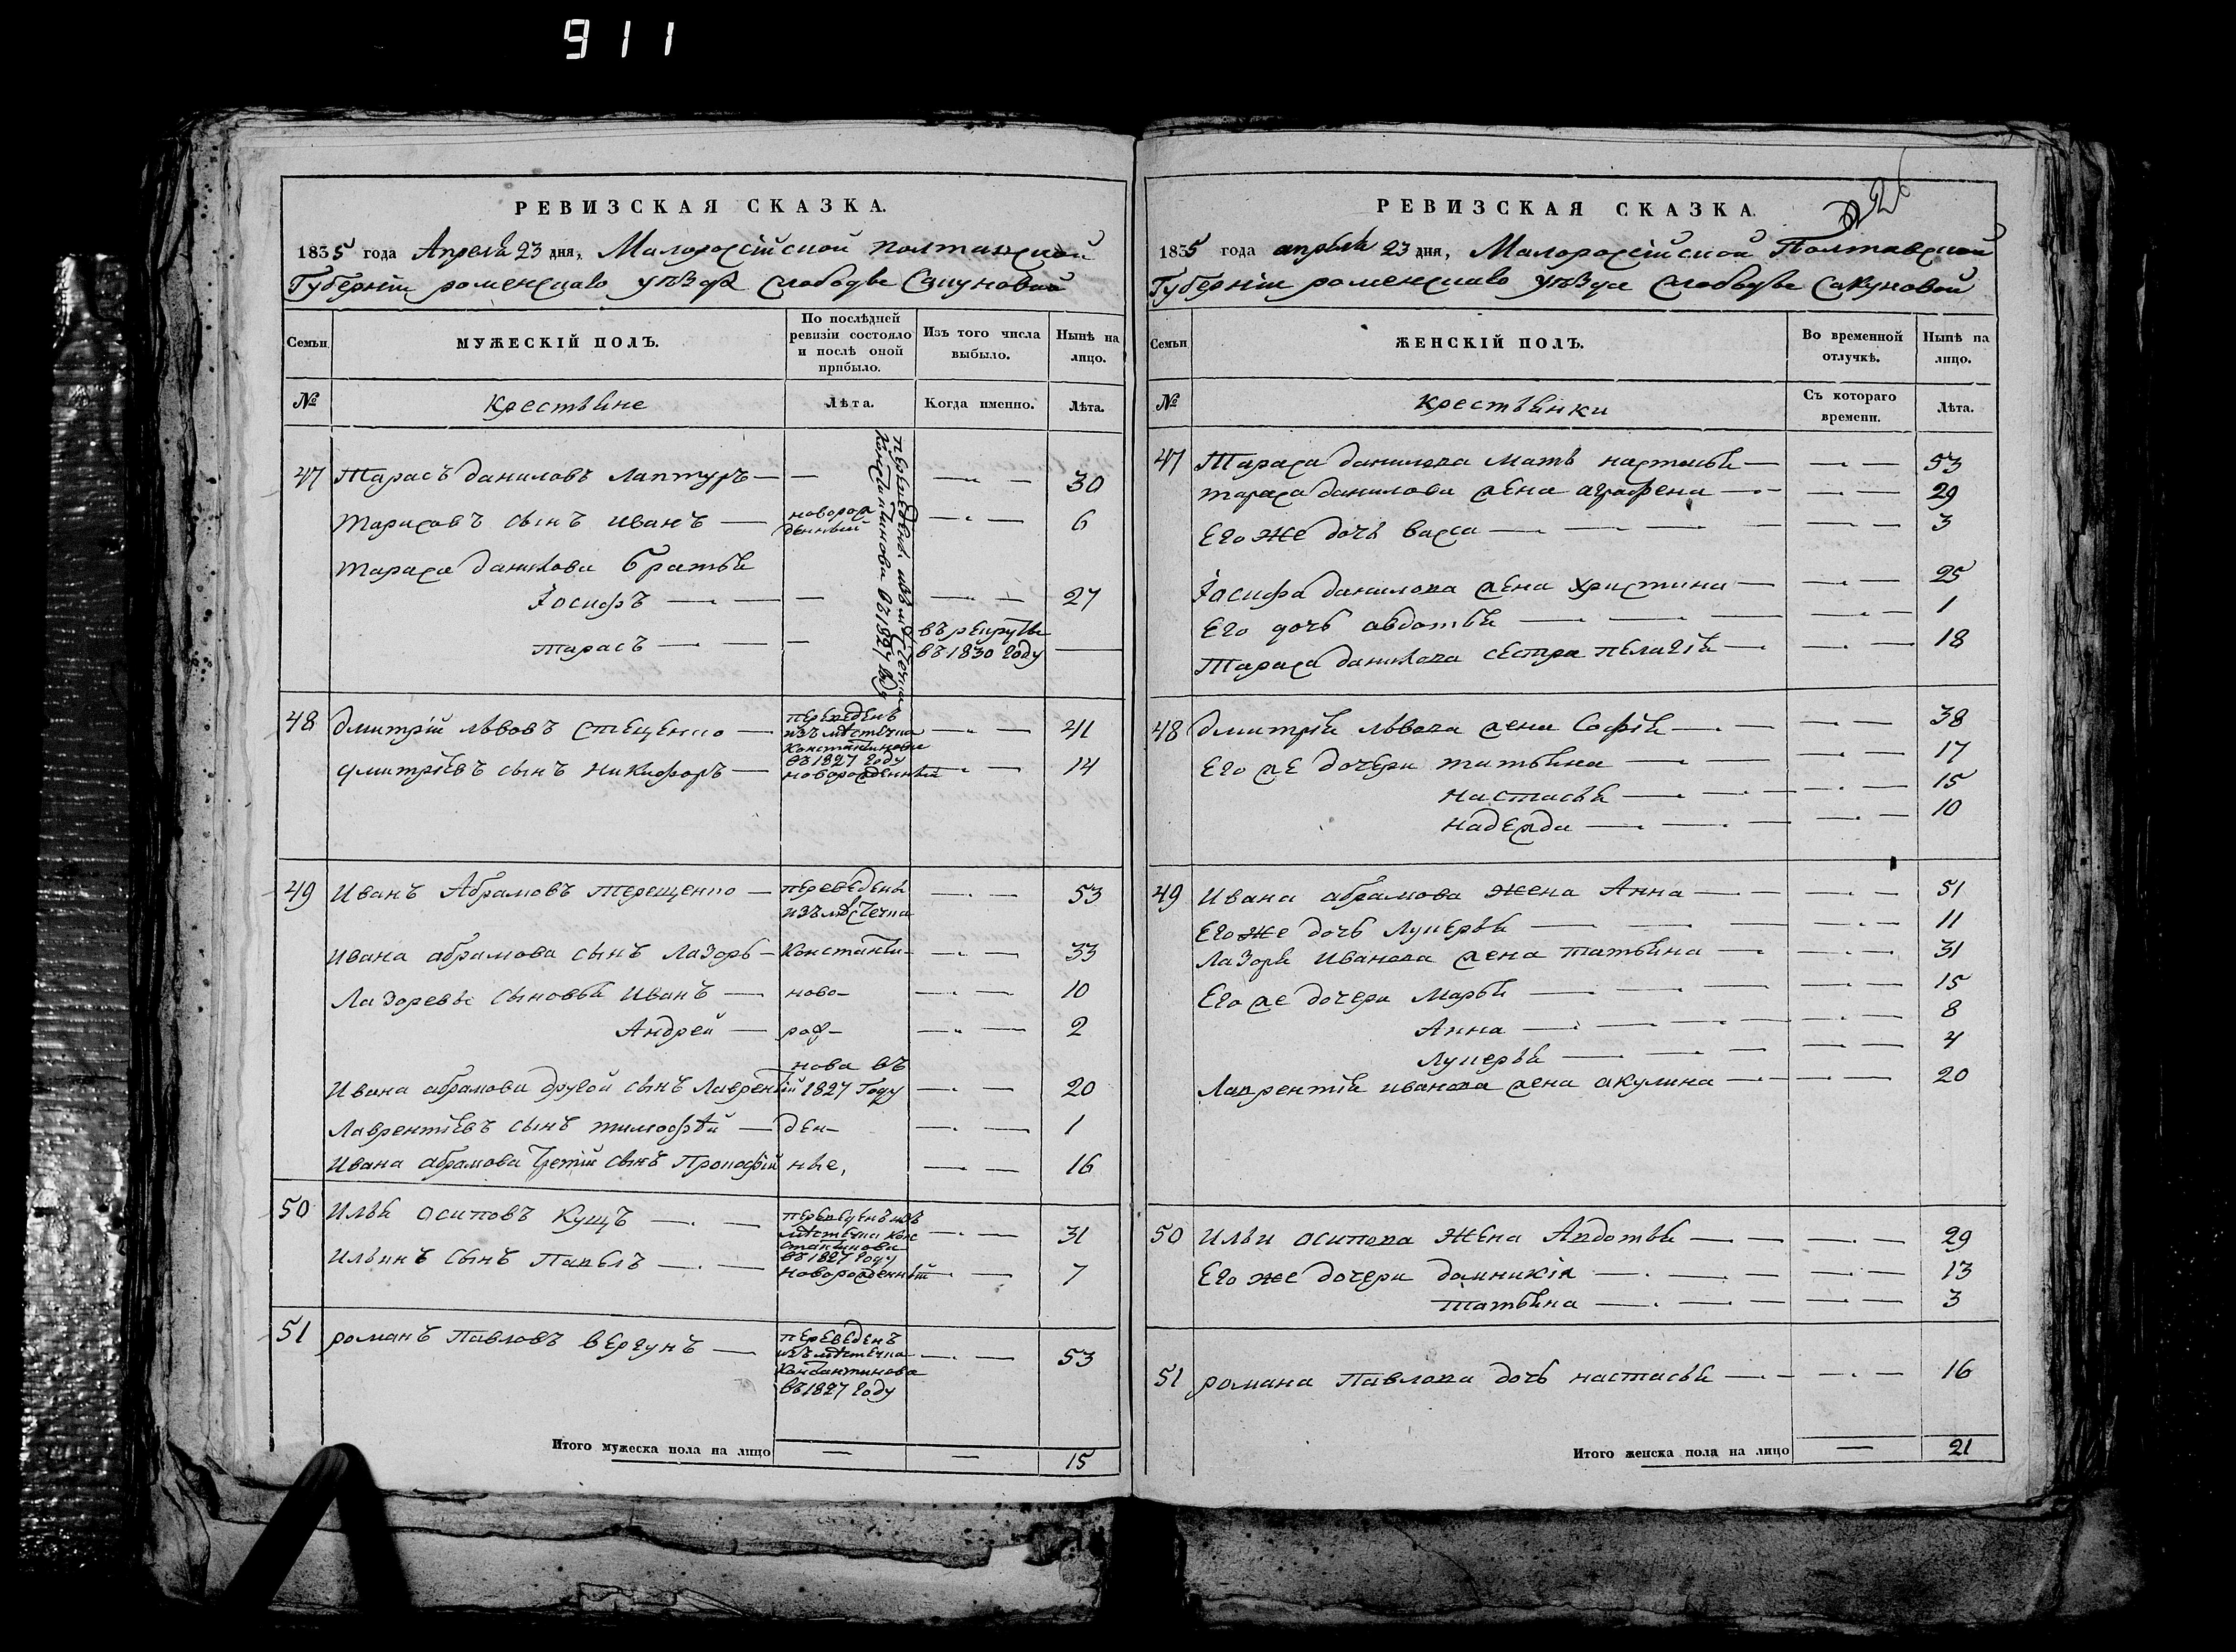 911
РЕВИЗСКАЯ СКАЗКА.
1835 года Апреля 23 дня, Малоросійской Полтавской
Губерніи роменскаго уѣзда слободы Сакуновой
Семьи
МУЖЕСКІЙ ПОЛЪ.
По послѣдней ревизіи состояло и послѣ оной прибыло.
Изъ того числа выбыло.
Нынѣ на лицо.
№
крестьяне
Лѣта.
Когда именно.
Лѣта.
переведены изъ местечка
Константинова въ 1827 году
47 Тарасъ даниловъ Лаптуръ — — — 30
Тарасовъ сынъ иванъ — новорожденный — 6
Тараса данилова братья
Іосифъ — — — 27
тарасъ — — въ рекруты въ 1830 году —
48 дмитрій львовъ Стещенко — переведенъ изъ мѣстечка Константинова въ 1827 году — 41
дмитріевъ сынъ никифоръ — новорожденный — 14
49 Иванъ Абрамовъ терещенко — переведены изъ мѣстечка — 53
ивана абрамова сынъ Лазорь — Константи- — 33
Лазоревы сыновья иванъ — ново- — 10
Андрей — рож- — 2
нова въ
Ивана абрамова другой сынъ Лаврентій 1827 Году — 20
Лаврентіевъ сынъ тимофѣй — ден- — 1
Ивана абрамова третій сынъ Прокофій ные, — 16
50 Илья осиповъ Кущъ — переведенъ изъ мѣстечка Константинова въ 1827 году — 31
Ильинъ сынъ Павелъ — новорожденный — 7
51 романъ Павловъ вергунъ — переведенъ изъ мѣстечка Константинова въ 1827 году — 53
Итого мужеска пола на лицо — — 15
РЕВИЗСКАЯ СКАЗКА.
1835 года апреля 23 дня, Малоросійской Полтавской
Губерніи роменскаго уѣзда слободы Сакуновой
Семьи
ЖЕНСКІЙ ПОЛЪ.
Во временной отлучкѣ.
Нынѣ на лицо.
№
крестьянки
Съ котораго времени.
Лѣта.
47 Тараса данилова мать настасья — — 53
тараса данилова жена аграфена — — 29
Его же дочь васса — — 3
Іосифа данилова жена христина — — 25
Его дочь авдотья — — 1
Тараса данилова сестра пелагія — — 18
48 дмитрія львова жена Софія — — 38
Его же дочери татьяна — — 17
настасья — — 15
надежда — — 10
49 Ивана абрамова жена Анна — — 51
Его же дочь Лукерья — — 11
Лазоря иванова жена татьяна — — 31
Его же дочери Марья — — 15
Анна — — 8
Лукерья — — 4
Лаврентія иванова жена акулина — — 20
50 Ильи осипова жена Авдотья — — 29
Его же дочери домникія — — 13
татьяна — — 3
51 романа Павлова дочь настасья — — 16
Итого женска пола на лицо — 21